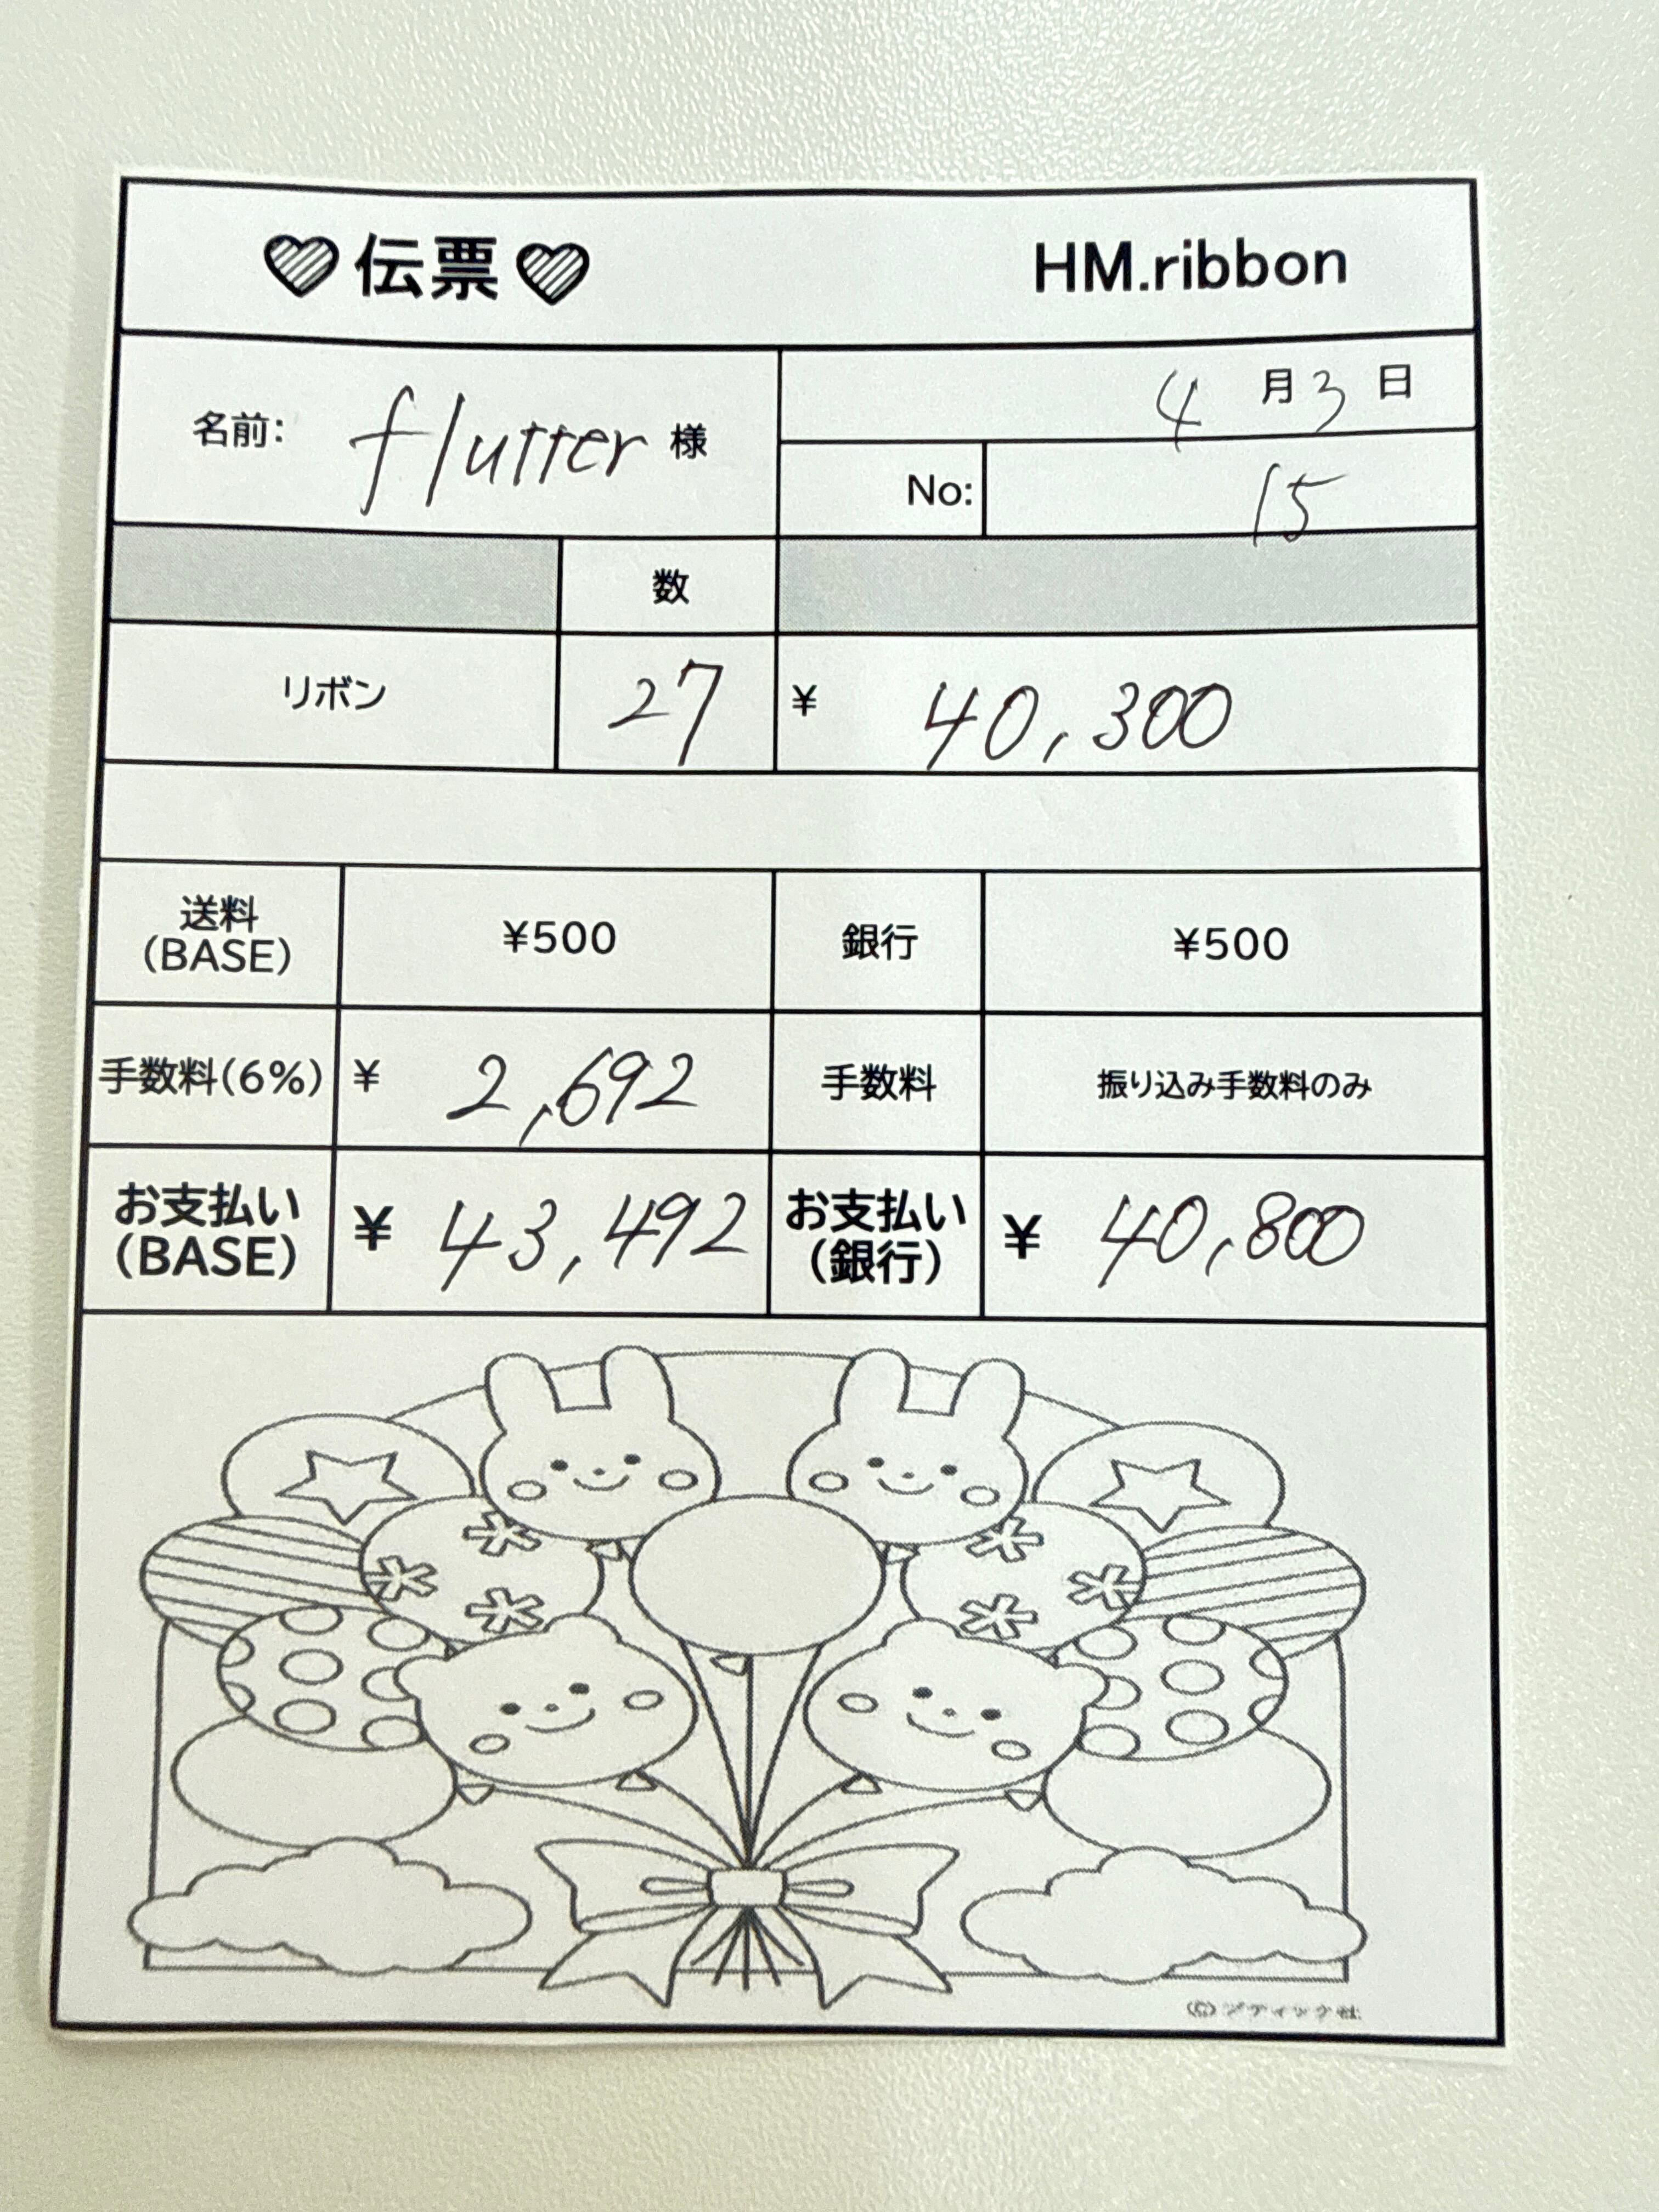 伝票 HM.ribbon
名前: flutter 様
4月3日
No: 15
数
リボン 27 ¥ 40,300
送料 (BASE) ¥500 銀行 ¥500
手数料(6%) ¥ 2,692 手数料 振り込み手数料のみ
お支払い (BASE) ¥ 43,492 お支払い (銀行) ¥ 40,800